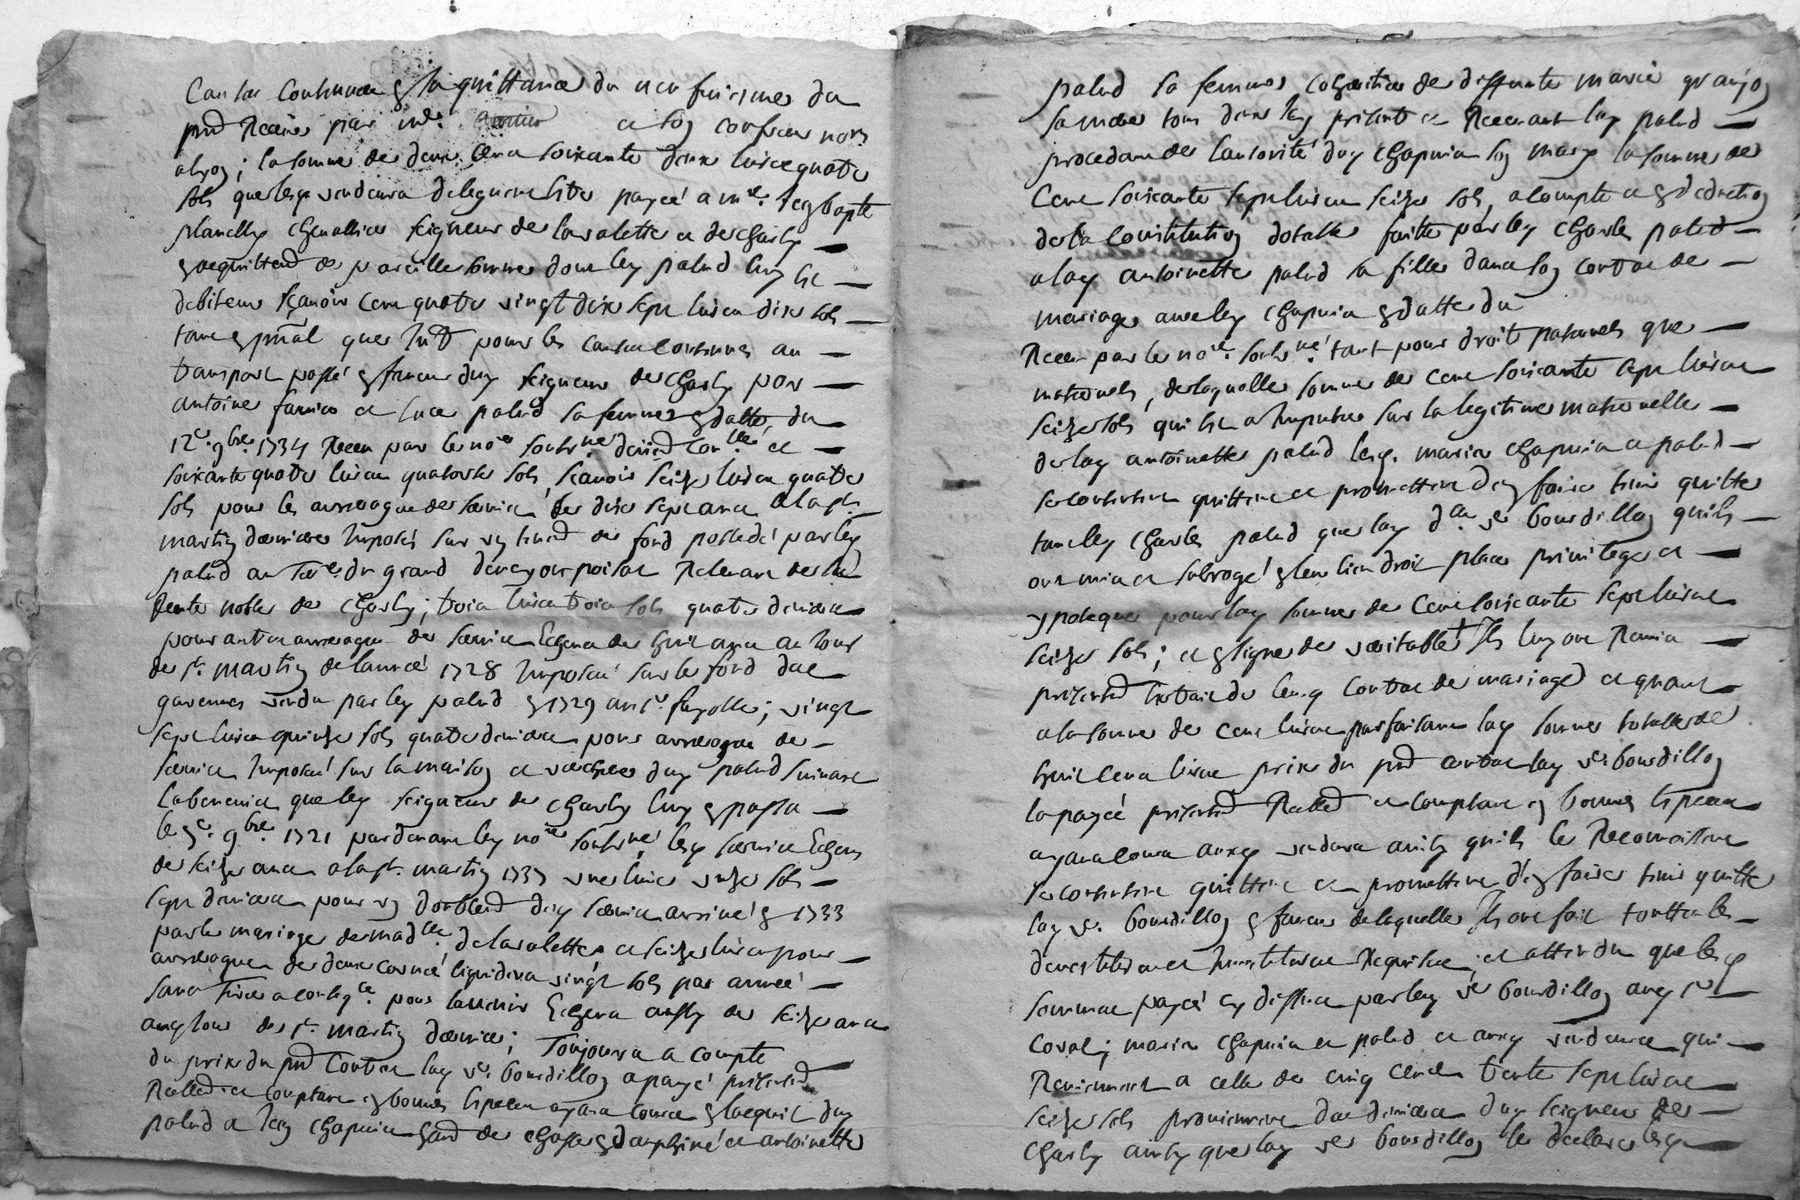 causes contenues en la quittance du neufviemes du
pnt Receus par me. a son confrere nore
alyon; la somme de deux cens soixante deux livres quatre
sols que lesd. vendeurs deleguent estre payé a mre. Jean bapte
planelly chevallier seigneur de lavalette et de charly
en acquittemt de pareille somme dont led. palud luy est
debiteur sçavoir cent quatre vingt dix sept livres dix sols
tant en pnal que Int pour les causes contenues au
transport passé en faveur dud. seigneur de charly par
antoine farnier et luce palud sa femme en datte du
12e. 9bre. 1734 Receu par le nore soubsne. et
soixante quatre livres quatorze sols, sçavoir seize livres quatre
sols pour les arrerages de servis de dix sept ans a la st.
martin derniere Imposés sur un tenemt de fond possedé par led.
palud au terre. du grand Relevant de lad.
Rente noble de charly; trois livres trois sols quatre deniers
pour autres arrerages de servis Echeus de huit ans au jour
de st. martin de l'année 1728 Imposés sur le fond des
garennes vendu par led. palud en 1729 au sr. fayolle; vingt
sept livres quinze sols quatre deniers pour arrerages de
servis Imposés sur la maison et verchere dud. palud suivant
l'abenevis que led. seigneur de charly luy en passa
le 5e. 9bre. 1721 pardevant led. nore soubsne. lesd. servis Echeus
de seize ans a la st. martin 1737 une livre unze sols
sept deniers pour un doublemt desd. servis arrivé en 1733
par le mariage de madlle. de lavalette et seize livres pour
arrerages de deux corvées liquidées a vingt sols par année
sans tirer a conseqce. pour l'advenir Echeus aussy de seize ans
aud. jour de st. martin dernier; Toujours a compte
du prix du pnt contrat lad. ve. bourdillon a payé presentemt
Reallemt et comptant en bonnes especes ayans cours en l'acquit dud.
palud a Jean chapuis gard de chasse en dauphiné et antoinette
palud sa femme coheritiere de deffunte marie granjon
sa mere tous deux icy presents et Recevant lad. palud
procedant de l'autorité dud. chapuis son mary la somme de
cent soixante sept livres seize sols, a compte et en deduction
de la constitution dotalle faitte par led. charles palud
a lad. antoinette palud sa fille dans son contrat de
mariage avec led. chapuis en datte du
Receu par le nore. soubsne. tant pour droits paternels que
maternels, de laquelle somme de cent soixante sept livres
seize sols qui est a Imputer sur la legitime maternelle
de lad. antoinette palud lesd. mariés chapuis et palud
se contentent quittent et promettent d'en faire tenir quitte
tant led. charles palud que lad. dlle. ve bourdillon qu'ils
ont mis et subrogé en leur lieu droit place privilege et
ypoteque pour lad. somme de cent soixante sept livres
seize sols; et en signe de veritable + Ils luy ont Remis
presentemt Extrait de leurd. contrat de mariage et quant
a la somme de cent livres parfaisant lad. somme totalle de
huit cens livres prix du pnt contrat lad. ve. bourdillon
la payé presentemt Reallemt et comptant en bonnes especes
ayans cours auxd. vendeurs ainsy qu'ils le Reconnoissent
se contentent quittent et promettent d'en faire tenir quitte
lad. ve. bourdillon en faveur de laquelle Ils ont fait touttes les
devestitures et Investitures Requises; et attendu que lesd.
sommes payés en differa par lad. ve bourdillon aud. sr.
coral; mariés chapuis et palud et auxd. vendeurs qui
Reviennent a celle de cinq cens trente sept livres
seize sols proviennent des deniers dud. seigneur de
charly ainsy que lad. ve bourdillon le declare lesd.